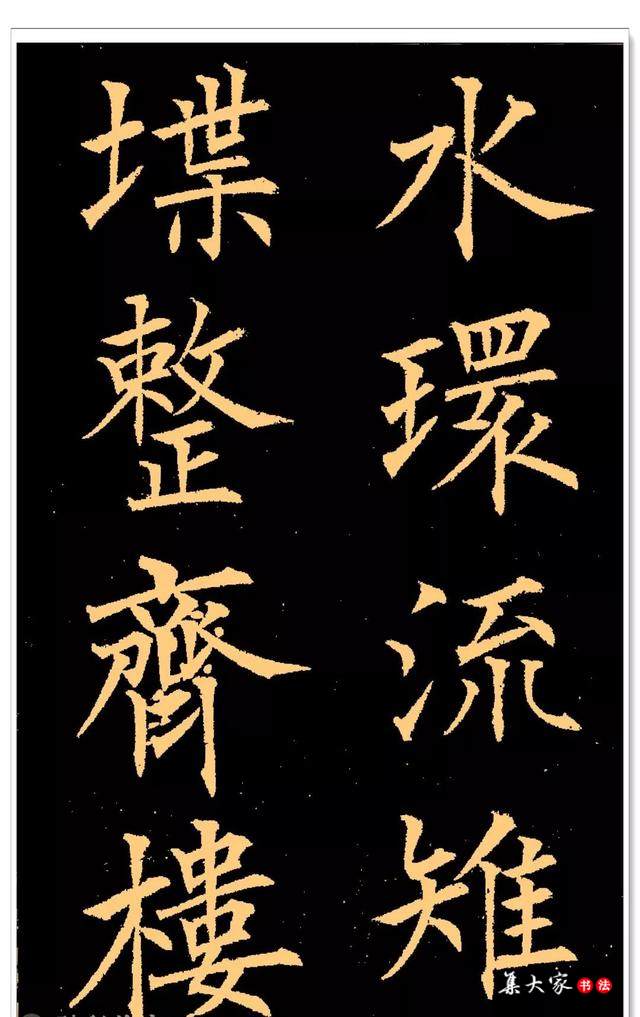 水環流雉
堞整齊樓
集大家书法